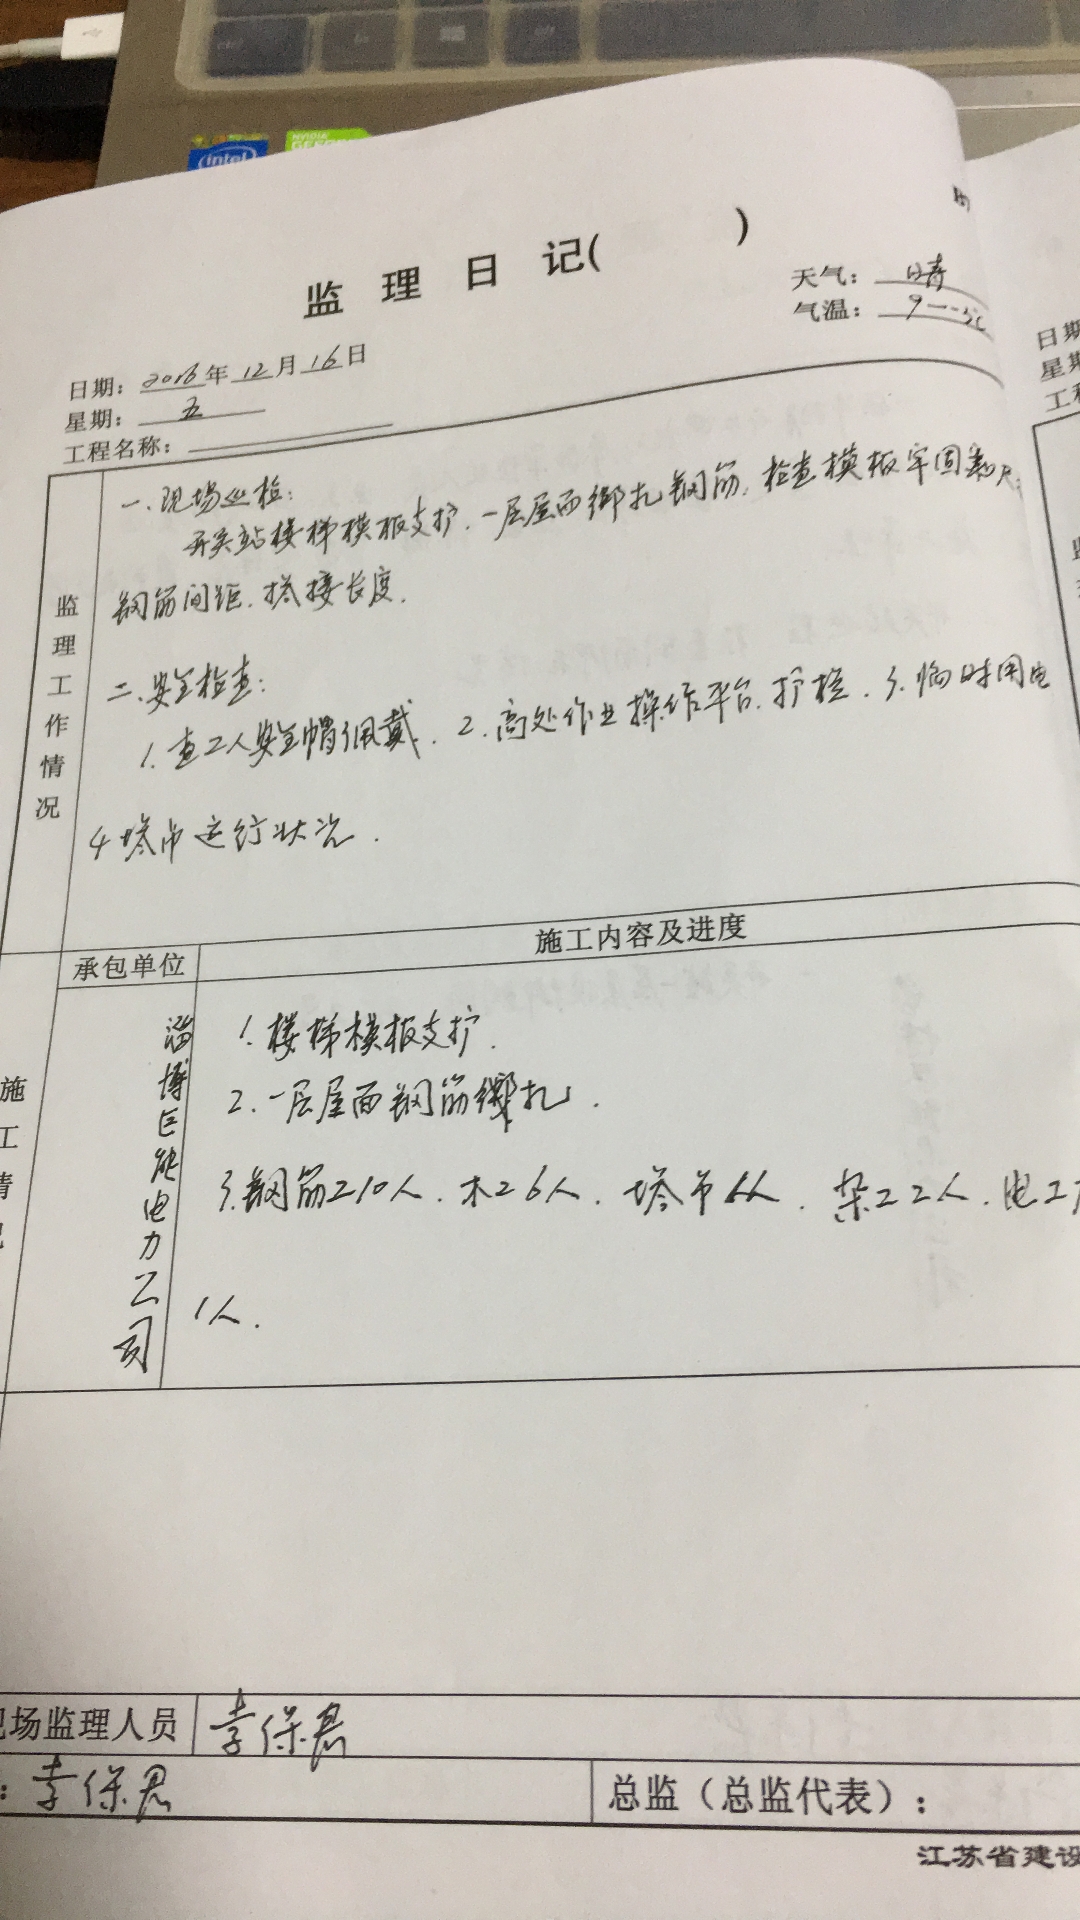 intel
NVIDIA
监 理 日 记( )
天气：晴
气温：9--5℃
日期：2016年12月16日
星期：五
工程名称：
监理工作情况
一.现场巡检：
开关站楼梯模板支护.一层屋面绑扎钢筋.检查模板牢固和尺
钢筋间距.搭接长度.
二.安全检查：
1.查工人安全帽佩戴.2.高处作业操作平台.护栏.3.临时用电
4塔吊运行状况.
承包单位
施工内容及进度
施工情况
淄博巨能电力公司
1.楼梯模板支护.
2.一层屋面钢筋绑扎.
3.钢筋工10人.木工6人.塔吊6人.杂工2人.电工
1人.
现场监理人员
李保恩
：李保恩
总监（总监代表）：
江苏省建设
日期
星期
工程